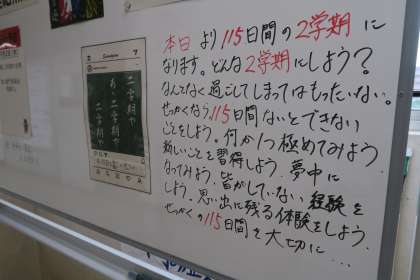 本日より115日間の2学期に
なります。どんな2学期にしよう？
なんとなく過ごしてしまってはもったいない。
せっかくなら115日間ないとできない
ことをしよう。何か1つ極めてみよう
新しいことを習得しよう。夢中に
なってみよう。皆がしていない経験を
しよう。思い出に残る体験をしよう。
せっかくの115日間を大切に…
二学期や
あゝ二学期や
二学期や